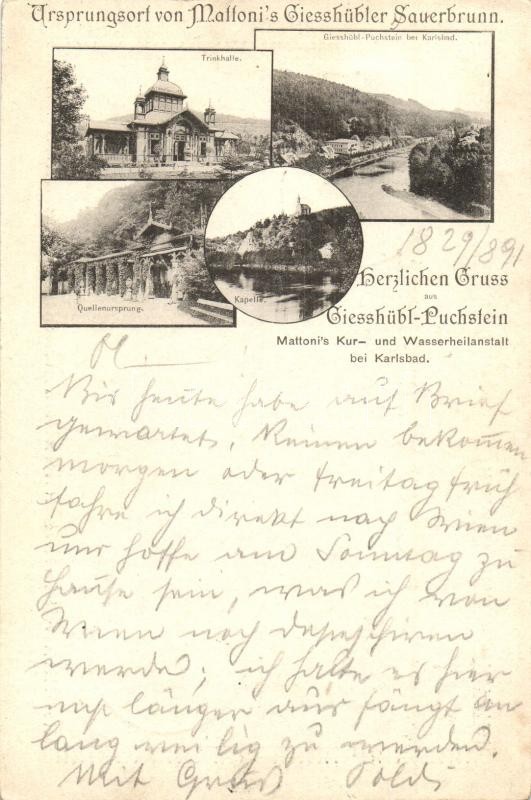 Ursprungsort von Mattoni's Giesshübler Sauerbrunn.
Trinkhalle.
Giesshübl-Puchstein bei Karlsbad.
Quellenursprung.
Kapelle.
1829/891
Herzlichen Gruss
aus
Giesshübl-Puchstein
Mattoni's Kur- und Wasserheilanstalt
bei Karlsbad.
Bis heute habe auf Brief
gewartet, keinen bekommen
morgen oder Freitag früh
fahre ich direkt nach Wien
und hoffe am Sonntag zu
Hause sein, was ich von
Wien noch depeschiren
werde; ich halte es hier
länger aus fängt an
langweilig zu werden.
Mit Gruß Poldi